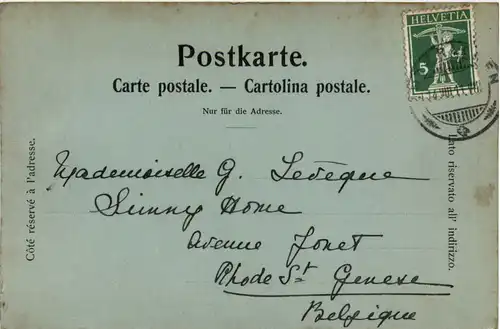 HELVETIA
5
Postkarte.
Carte postale. — Cartolina postale.
Nur für die Adresse.
Côté réservé à l'adresse.
Lato riservato all' indirizzo.
Mademoiselle G. Levêque
Sunny Home
Avenue Jonet
Rhode St Genese
Belgique